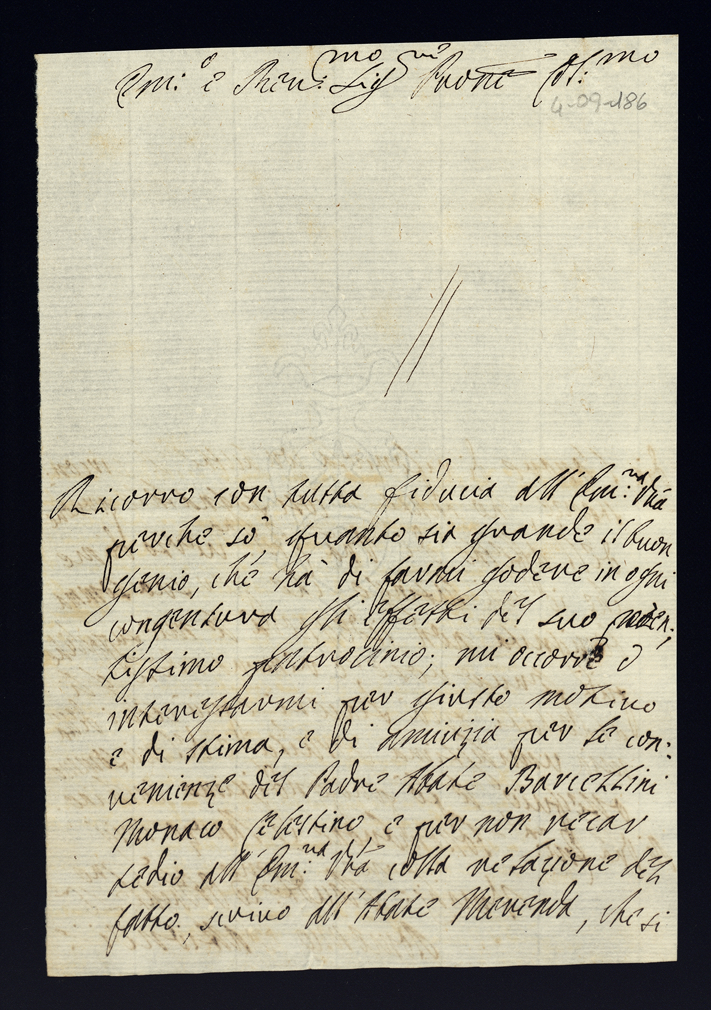 Em:o e Reu:mo Sigre Prone Col:mo
4-09-186
Ricorro con tutta fiducia all'Em:za Vra
perche so quanto sia grande il buon
genio, che hà di farmi godere in ogni
congentura gli effetti del suo
tissimo patrocinio; mi occorre d
interessarmi per giusto motivo
e di stima, e di amicizia per le con:
venienze del Padre Abate Barcellini
Monaco Celestino e per non recar
tedio all'Em:za Vra colla relazione del
fatto, scrivo all'Abate Merenda, che si